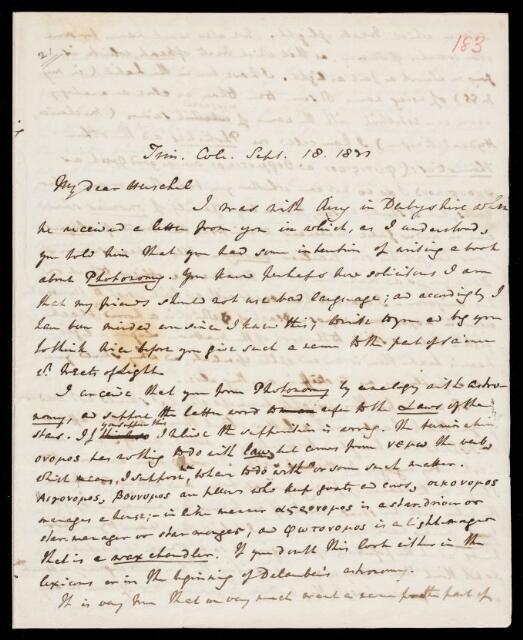 21
183
Trin. Coll. Sept. 18. 18
My dear Herschel
I was with Airy in Derbyshire when
he received a letter from you in which, as I understand,
you told him that you had some intention of writing a book
about Photonomy. You know perhaps how solicitous I am
that my friends should not use bad language; and accordingly I
have been minded ever since I knew this, to write to you and beg you
to think twice before you give such a name to the part of science
wh. treats of light.
I conceive that you form Photonomy by analogy with astro-
nomy, and suppose the latter word to mean refer to the Laws of the
stars. If you suppose this I believe the supposition is wrong. The termination
ονομος has nothing to do with law, but comes from νεμω the verb,
which means, I suppose, "to have to do with" or some such matter.
Αιγονομος, Βουνομος are fellows who keep goats and cows, οικονομος
manages a house; in like manner αστρονομος is a star-driver or
star-manager or star-monger, and φωτονομος is a light-manager
that is a wax chandler. If you doubt this look either in the
lexicons or in the beginning of Delambre's astronomy.
It is very true that we very much want a name for the part of